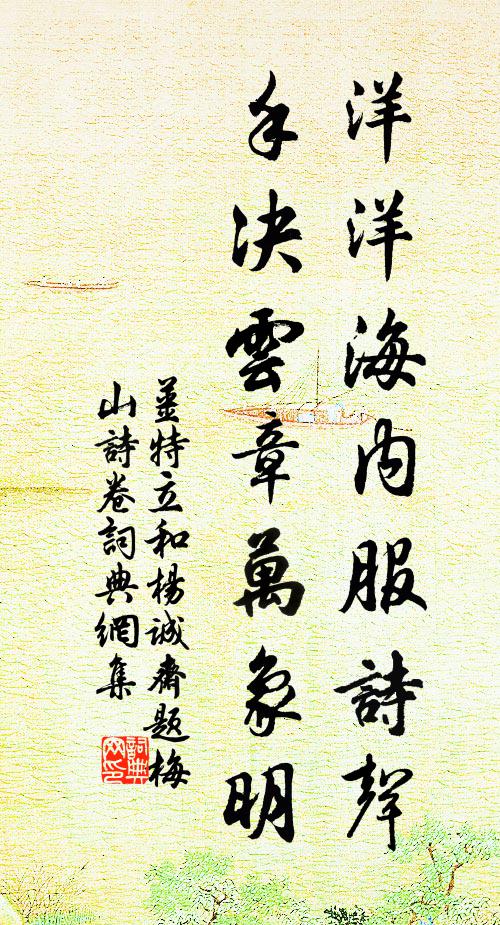 洋洋海内服詩聲
手决雲章萬象明
姜特立和楊誠齋題梅
山詩卷詞典網集
詞典
网印